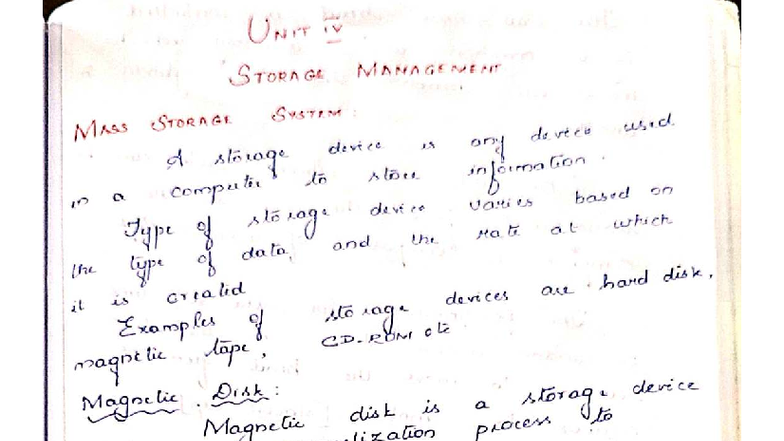 UNIT IV
STORAGE MANAGEMENT
MASS STORAGE SYSTEM:
A storage device is any device used
in a computer to store information.
Type of storage device varies based on
the type of data, and the rate at which
it is created
Examples of storage devices are hard disk,
magnetic tape, CD-ROM etc
Magnetic Disk:
Magnetic disk is a storage device
process to